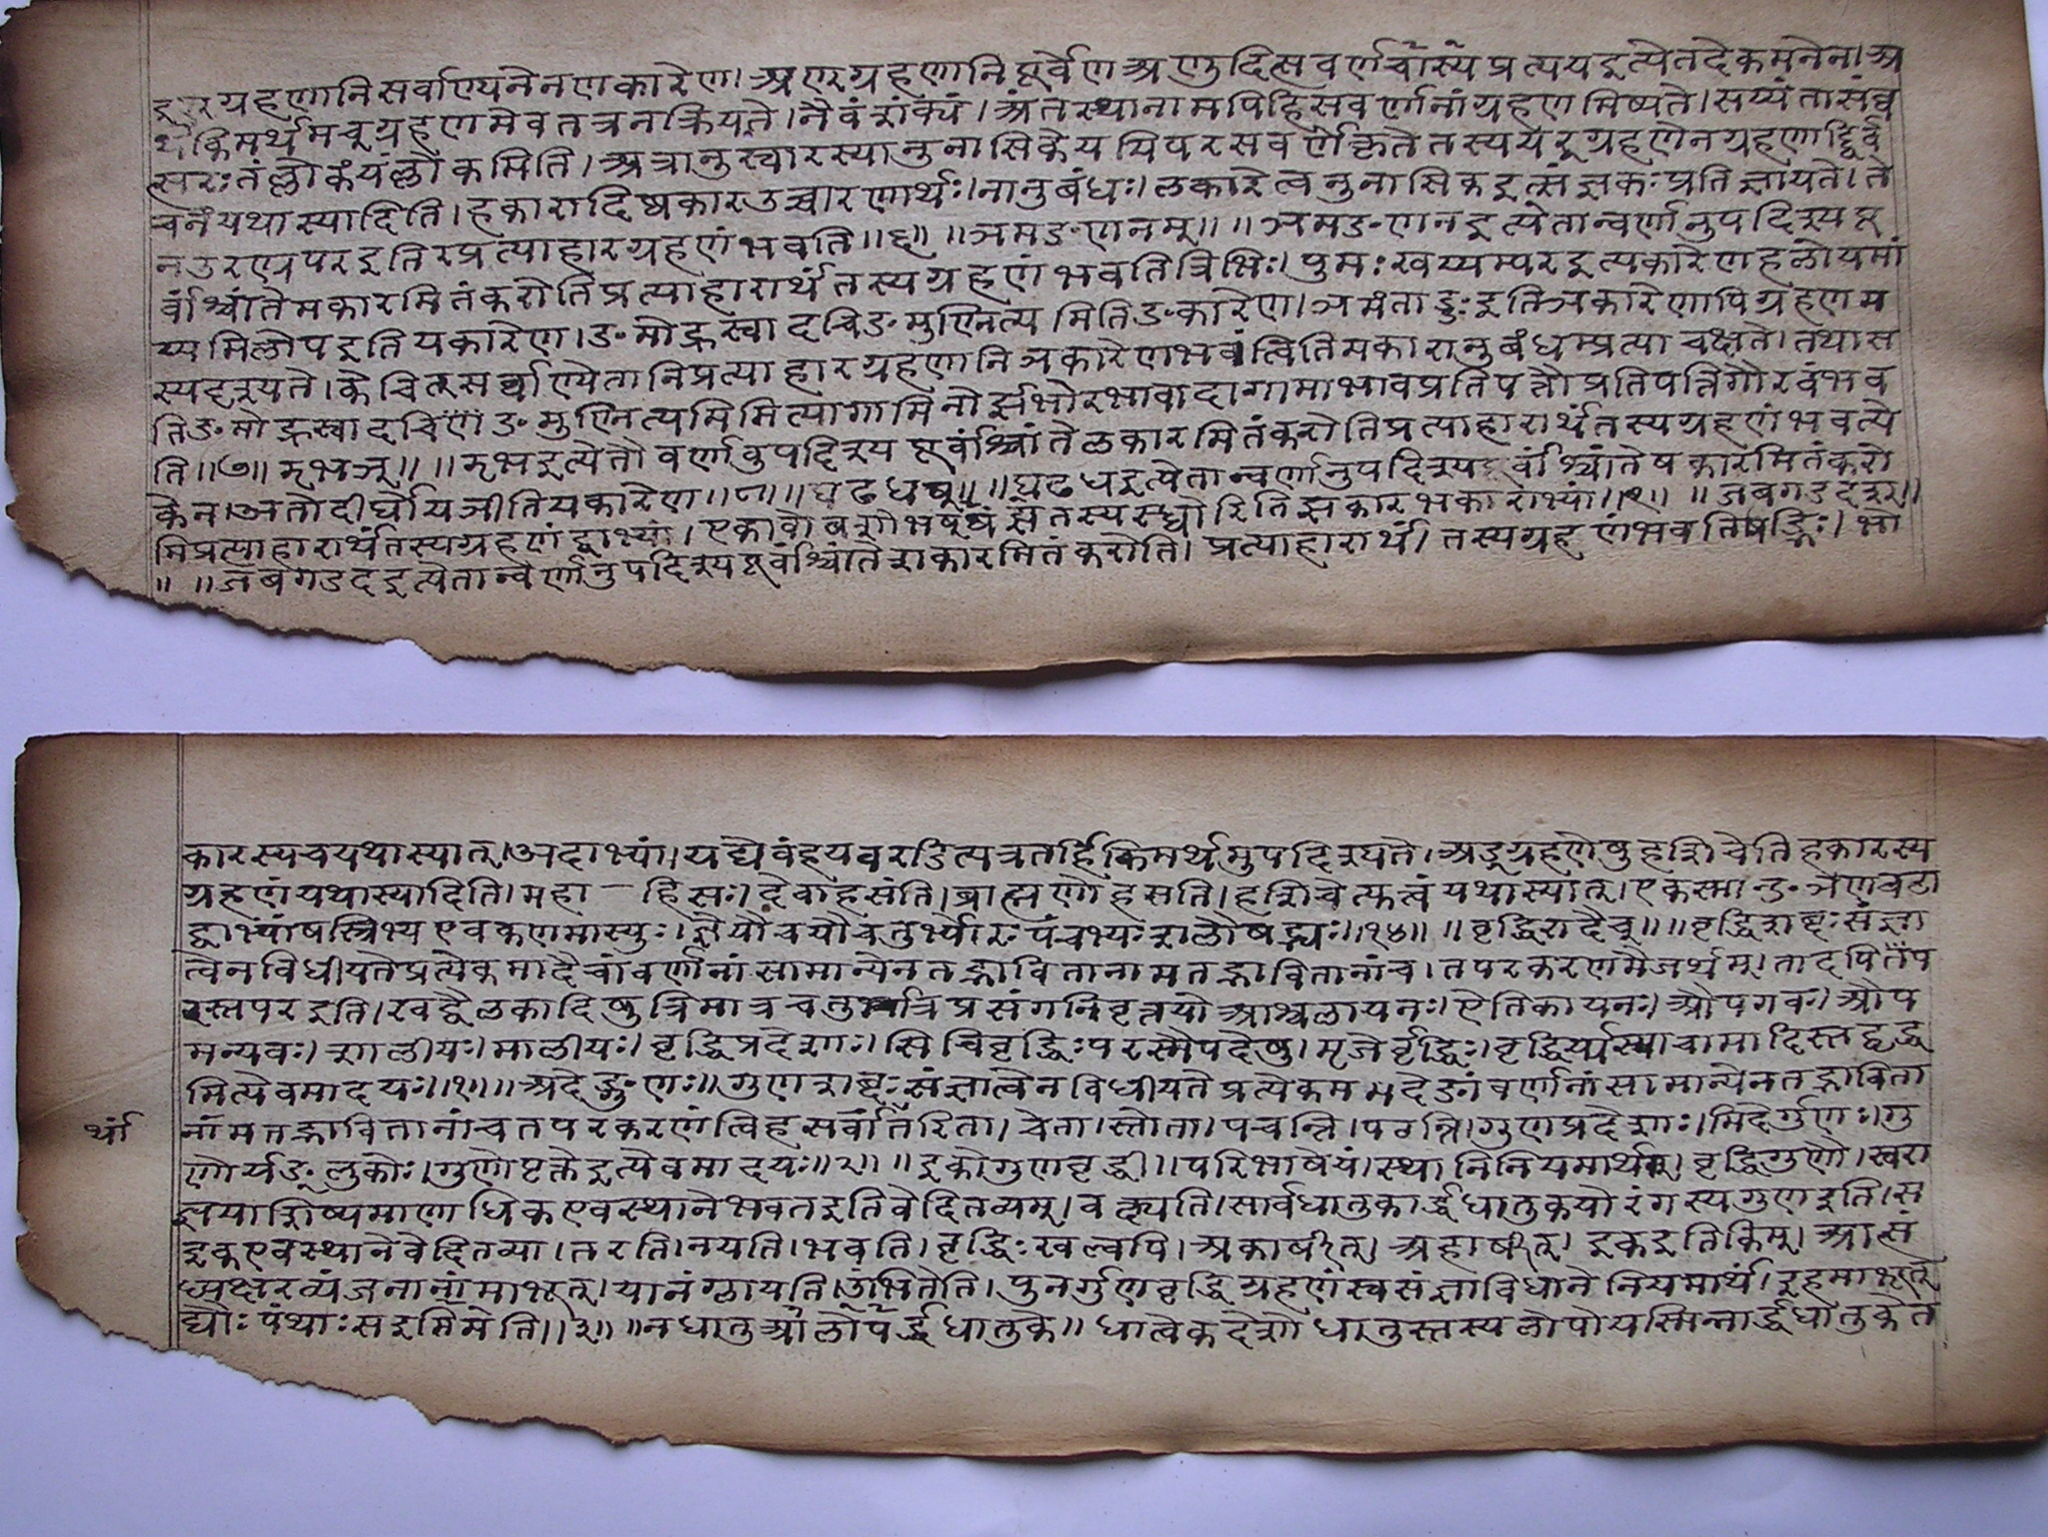 इण्ग्रहणानिसर्वाण्यनेनणकारेण।अण्ग्रहणानिपूर्वेणअणुदित्सवर्णचास्यप्रत्ययइत्येतदेकमनेन।अ
थकिमर्थमच्ग्रहणमेवतत्रनक्रियते।नैवंशक्यं।अंतस्थानामपिहिसवर्णनांग्रहणमिष्यते।सय्यंतासंव्व
त्सरःतंल्लोकंयंल्लोकमिति।अत्रानुस्वारस्यानुनासिकेययिपरसवर्णेकृतेतस्ययर्ग्रहणेनग्रहणाद्द्विर्व
चनंयथास्यादिति।हकारादिष्वकारउच्चारणार्थः।नानुबंधः।लकारेत्वनुनासिकइत्संज्ञकःप्रतिज्ञायते।ते
नउरण्रपरइतिरप्रत्याहारग्रहणंभवति॥६॥ ॥ञमङणनम्॥ ॥ञमङणनइत्येतान्वर्णानुपदिश्यपू
र्वांश्चांतेमकारमितंकरोतिप्रत्याहारार्थंतस्यग्रहणंभवतित्रिभिः।पुमःखय्यम्परइत्यकारेणहलोयमां
य्यमिलोपइतियकारेण।ङमोह्रस्वादचिङमुण्नित्यमितिङकारेण।ञमंताड्डःइतिञकारेणापिग्रहणम
स्यदृश्यते।केचित्सर्व्वाण्येतानिप्रत्याहारग्रहणानिञकारेणभवंत्वितिमकारानुबंधम्प्रत्याचक्षते।तथास
तिङमोह्रस्वादचिणंङमुण्नित्यमिमित्यागामिनोर्झभोरभावादागामाभावप्रतिपत्तौप्रतिपत्तिगौरवंभव
ति॥७॥झभञ्॥ ॥झभइत्येतौवर्णवुपदिश्यपूर्वांश्चांतेञकारमितंकरोतिप्रत्याहारार्थंतस्यग्रहणंभवत्ये
केन।अतोदीर्घोयञीतियकारेण॥८॥ ॥घढधष्॥ ॥घढधइत्येतान्वर्णानुपदिश्यपूर्वांश्चांतेषकारमितंकरो
मिप्रत्याहारार्थंतस्यग्रहणंद्वाभ्यां।एकाचोबशोभष्झषंसतस्यस्ध्वोरितिझकारभकाराभ्यां॥९॥ ॥जबगडदश्॥
॥ ॥जबगडदइत्येतान्वर्णानुपदिश्यपूर्वांश्चांतेशकारमितंकरोति।प्रत्याहारार्थं।तस्यग्रहणंभवतिषड्भिः।भो
कारस्यचयथास्यात्।अदाभ्यां।यद्येवंहयवरडित्यत्रतर्हिकिमर्थमुपदिश्यते।अड्ग्रहणेषुहशिचेतिहकारस्य
ग्रहणंयथास्यादिति।महा — हिसः।देवाहसंति।ब्राह्मणोहसति।हशिचेत्युत्वंयथास्यात्।एकस्मान्ङञणवटा
द्वाभ्यांषस्त्रिभ्यएवकणमास्युः।ज्ञेयौचयौचतुर्भ्योरःपंचभ्यःशलौषड्भ्यः॥१४॥ ॥वृद्धिरादैच्॥ ॥वृद्धिशब्दःसंज्ञा
त्वेनविधीयतेप्रत्येकमादैचांवर्णानांसामान्येनतद्भावितानामतद्भावितानांच।तपरकरणमैजर्थम्।तादपितःप
रस्तपरइति।खट्वैलकादिषुत्रिमात्रचतुर्मात्रप्रसंगनिवृत्तयोआश्वलायनः।ऐतिकायनः।औपगवः।औप
मन्यवः।शालीयः।मालीयः।वृद्धिप्रदेशाः।सिचिवृद्धिःपरस्मैपदेषु।मृजेर्वृद्धिः।वृद्धिर्य्यास्याचामादिस्तद्वृद्ध
मित्येवमादयः॥१॥ ॥अदेङ्गुणः॥गुणशब्दःसंज्ञात्वेनविधीयतेप्रत्येकममदेङांवर्णानांसामान्येनतद्भाविता
थां
नांमतद्भावितानांचतपरकरणंत्विहसर्वार्तरिता।चेता।स्तोता।पचन्ति।पठन्ति।गुणप्रदेशाः।मिदेर्गुणः।गु
णोर्यङ्लुकोः।गुणोपृक्तेइत्येवमादयः॥२॥ ॥इकोगुणवृद्धी॥परिभाषेयं।स्थानिनियमार्थम्।वृद्धिगुणौ।स्वसं
ज्ञयाशिष्यमाणाधिकएवस्थानेभवतइतिवेदितव्यम्।वक्ष्यति।सार्वधातुकार्द्धधातुकयोरंगस्यगुणइति।स
इकएवस्थानेवेदितव्या।तरति।नयति।भवति।वृद्धिःखल्वपि।अकार्षीत्।अहार्षीत्।इकइतिकिम्।आत्सं
ध्यक्षरव्यंजनानांमाभूत्।यानंग्लायति।उंभितेति।पुनर्गुणवृद्धिग्रहणंस्वसंज्ञाविधानेनियमार्थं।इहमाभूत्
द्यौःपंथाःसइममिति॥३॥ ॥नधातुलोपआर्द्धधातुके॥धात्वेकदेशोधातुस्तस्यलोपोयस्मिन्नार्द्धधातुकेत